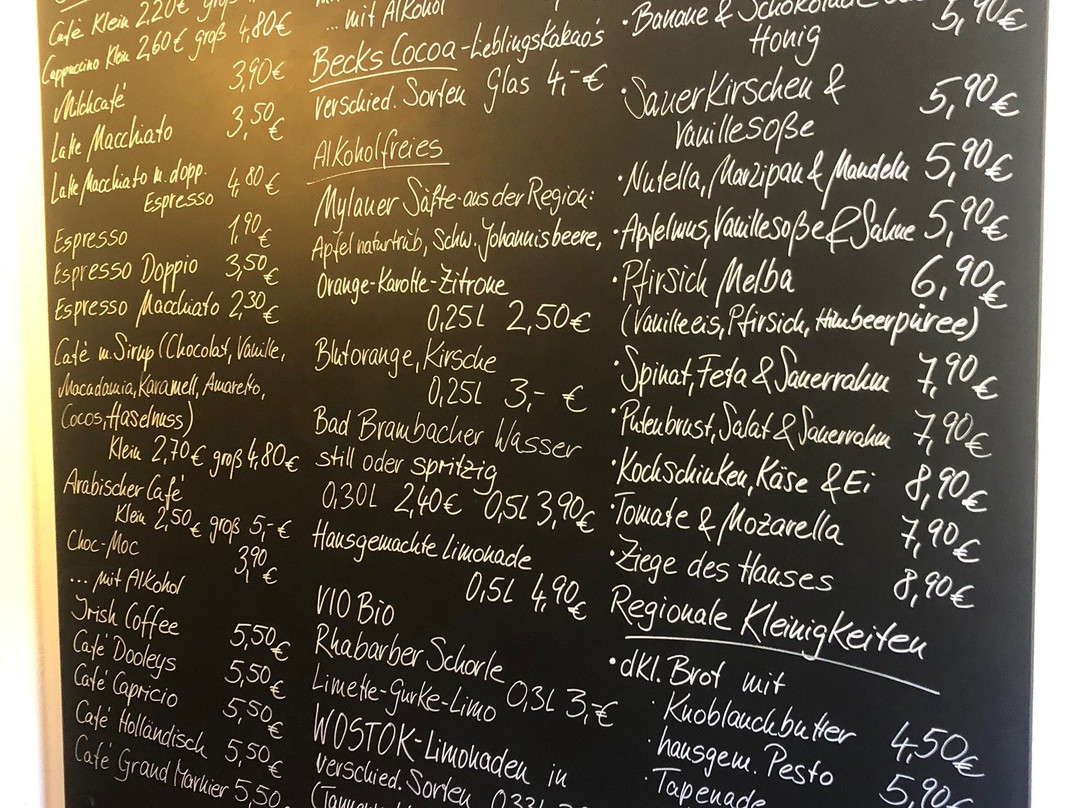 Café Klein 2,20€ groß
Cappuccino Klein 2,60€ groß 4,80€
Milchcafé 3,90€
Latte Macchiato 3,50€
Latte Macchiato m. dopp.
Espresso 4,80€
Espresso 1,90€
Espresso Doppio 3,50€
Espresso Macchiato 2,30€
Café m. Sirup (Chocolat, Vanille,
Macadamia, Karamell, Amaretto,
Cocos, Haselnuss)
Klein 2,70€ groß 4,80€
Arabischer Café
Klein 2,50€ groß 5,-€
Choc-Moc 3,90€
... mit Alkohol
Irish Coffee 5,50€
Café Dooleys 5,50€
Café Capricio 5,50€
Café Holländisch 5,50€
Café Grand Marnier 5,50
... mit Alkohol
Becks Cocoa-Lieblingskakao's
verschied. Sorten Glas 4,-€
Alkoholfreies
Mylauer Säfte-aus der Region:
Apfel naturtrüb, Schw. Johannisbeere,
Orange-Karotte-Zitrone
0,25l 2,50€
Blutorange, Kirsche
0,25l 3,- €
Bad Brambacher Wasser
still oder spritzig
0,30l 2,40€ 0,5l 3,90€
Hausgemachte Limonade
0,5l 4,90€
VIO Bio
Rhabarber Schorle
Limette-Gurke-Limo 0,3l 3,-€
WOSTOK-Limonaden in
verschied. Sorten
0,33l
·Banane & Schokolade
Honig 5,90€
·Sauerkirschen &
Vanillesoße 5,90€
·Nutella, Marzipan & Mandeln 5,90€
·Apfelmus, Vanillesoße & Sahne 5,90€
·Pfirsich Melba 6,90€
(Vanilleeis, Pfirsich, Himbeerpüree)
·Spinat, Feta & Sauerrahm 7,90€
·Putenbrust, Salat & Sauerrahm 7,90€
·Kochschinken, Käse & Ei 8,90€
·Tomate & Mozarella 7,90€
·Ziege des Hauses 8,90€
Regionale Kleinigkeiten
·dkl. Brot mit
· Knoblauchbutter 4,50€
· hausgem. Pesto 5,90€
· Tapenade